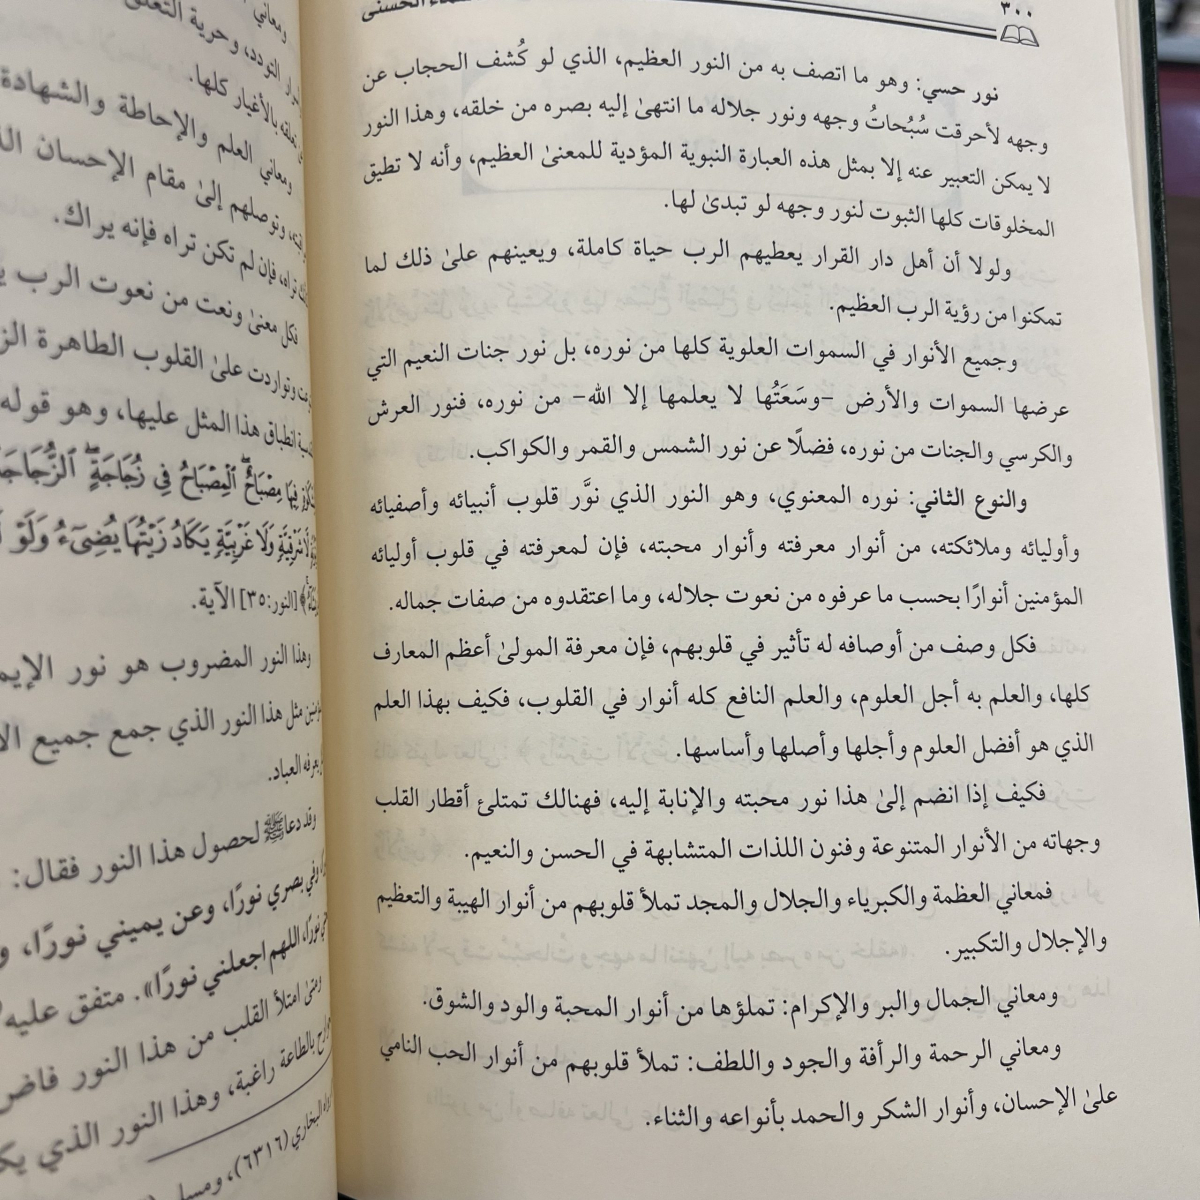 ٣٠٠
الحسنى
نور حسي: وهو ما اتصف به من النور العظيم، الذي لو كُشف الحجاب عن
وجهه لأحرقت سُبُحاتُ وجهه ونور جلاله ما انتهىٰ إليه بصره من خلقه، وهذا النور
لا يمكن التعبير عنه إلا بمثل هذه العبارة النبوية المؤدية للمعنىٰ العظيم، وأنه لا تطيق
المخلوقات كلها الثبوت لنور وجهه لو تبدىٰ لها.
ولولا أن أهل دار القرار يعطيهم الرب حياة كاملة، ويعينهم علىٰ ذلك لما
تمكنوا من رؤية الرب العظيم.
وجميع الأنوار في السموات العلوية كلها من نوره، بل نور جنات النعيم التي
عرضها السموات والأرض -وسَعَتُها لا يعلمها إلا الله- من نوره، فنور العرش
والكرسي والجنات من نوره، فضلًا عن نور الشمس والقمر والكواكب.
والنوع الثاني: نوره المعنوي، وهو النور الذي نوَّر قلوب أنبيائه وأصفيائه
وأوليائه وملائكته، من أنوار معرفته وأنوار محبته، فإن لمعرفته في قلوب أوليائه
المؤمنين أنوارًا بحسب ما عرفوه من نعوت جلاله، وما اعتقدوه من صفات جماله.
فكل وصف من أوصافه له تأثير في قلوبهم، فإن معرفة المولىٰ أعظم المعارف
كلها، والعلم به أجل العلوم، والعلم النافع كله أنوار في القلوب، فكيف بهذا العلم
الذي هو أفضل العلوم وأجلها وأصلها وأساسها.
فكيف إذا انضم إلىٰ هذا نور محبته والإنابة إليه، فهنالك تمتلئ أقطار القلب
وجهاته من الأنوار المتنوعة وفنون اللذات المتشابهة في الحسن والنعيم.
فمعاني العظمة والكبرياء والجلال والمجد تملأ قلوبهم من أنوار الهيبة والتعظيم
والإجلال والتكبير.
ومعاني الجمال والبر والإكرام: تملؤها من أنوار المحبة والود والشوق.
ومعاني الرحمة والرأفة والجود واللطف: تملأ قلوبهم من أنوار الحب النامي
علىٰ الإحسان، وأنوار الشكر والحمد بأنواعه والثناء.
ومعاني
التودد، وحرية التعلق
بالأغيار كلها.
ومعاني العلم والإحاطة والشهادة
وتوصلهم إلىٰ مقام الإحسان
تراه، فإن لم تكن تراه فإنه يراك.
فكل معنىٰ ونعت من نعوت الرب
وتواردت علىٰ القلوب الطاهرة
انطباق هذا المثل عليها، وهو قوله
فِيهَا مِصْبَاحٌ ٱلْمِصْبَاحُ فِي زُجَاجَةٍ ٱلزُّجَاجَةُ
وَلَا غَرْبِيَّةٍ يَكَادُ زَيْتُهَا يُضِيٓءُ وَلَوْ
[النور:٣٥] الآية.
وهذا النور المضروب هو نور
مثل هذا النور الذي جمع جميع
يعرفه العباد.
وقد دعا ﷺ لحصول هذا النور فقال:
وفي بصري نورًا، وعن يميني نورًا،
نورًا، اللهم اجعلني نورًا». متفق عليه
ومتىٰ امتلأ القلب من هذا النور فاض
بالطاعة راغبة، وهذا النور الذي
البخاري (٦٣١٦)، ومسلم